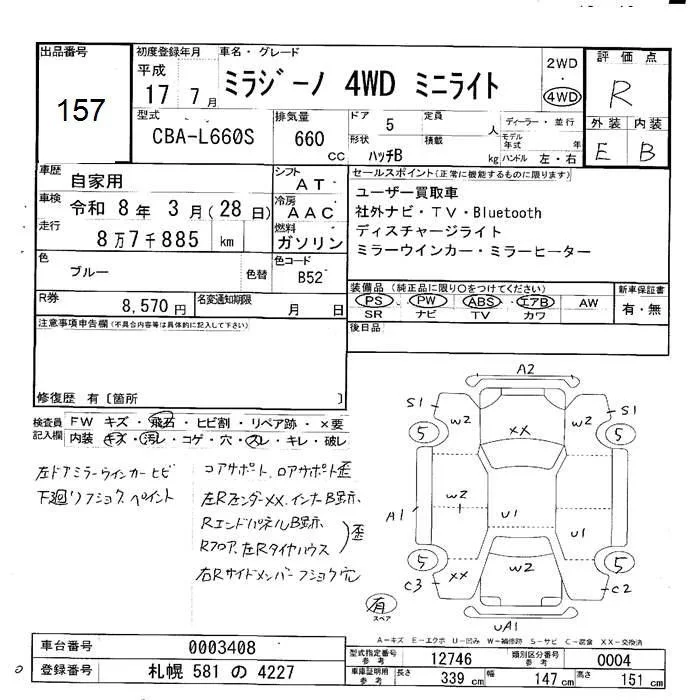 出品番号
157
初度登録年月
平成
17 7月
車名・グレード
ミラジーノ 4WD ミニライト
2WD
・
4WD
評価点
R
外装 内装
E B
型式
CBA-L660S
排気量
660
CC
ドア 5 定員 人
形状 ハッチB 積載 kg
ディーラー・並行
モデル年式 年
ハンドル 左・右
車歴
自家用
シフト
AT
車検
令和 8年 3月(28日)
冷房
AAC
走行
8万7千885 km
燃料
ガソリン
色
ブルー
色替
色コード
B52
R券
8,570円
名変通知期限
月 日
セールスポイント(正常に機能するものに限ります)
ユーザー買取車
社外ナビ・TV・Bluetooth
ディスチャージライト
ミラーウインカー・ミラーヒーター
装備品(純正品に限り○をつけてください)
PS PW ABS エアB AW
SR ナビ TV カワ
新車保証書
有・無
後日品
注意事項申告欄(不具合内容等は具体的に記入して下さい)
修復歴 有〔箇所 〕
検査員記入欄
FW キズ・飛石・ヒビ割・リペア跡・×要
内装 キズ・汚レ・コゲ・穴・スレ・キレ・破レ
左ドアミラーウインカーヒビ
下廻りフショク、ペイント
コアサポート、ロアサポート歪
左Rフェンダーxx、インナーB跡示
RエンドパネルB跡示
Rフロア、左Rタイヤハウス
歪
右Rサイドメンバーフショク穴
A2
S1 S1
W2 W2
5 5
XX
W2
A1
U1
U1
5 5
XX
W2
C3 C2
UA1
有
スペア
A-キズ E-エクボ U-凹み W-補修跡 S-サビ C-腐食 XX-交換済
車台番号
0003408
登録番号
札幌 581 の 4227
型式指定番号
参考
12746
類別区分番号
参考
0004
車庫証明用
参考
長さ 339 cm 幅 147 cm 高さ 151 cm